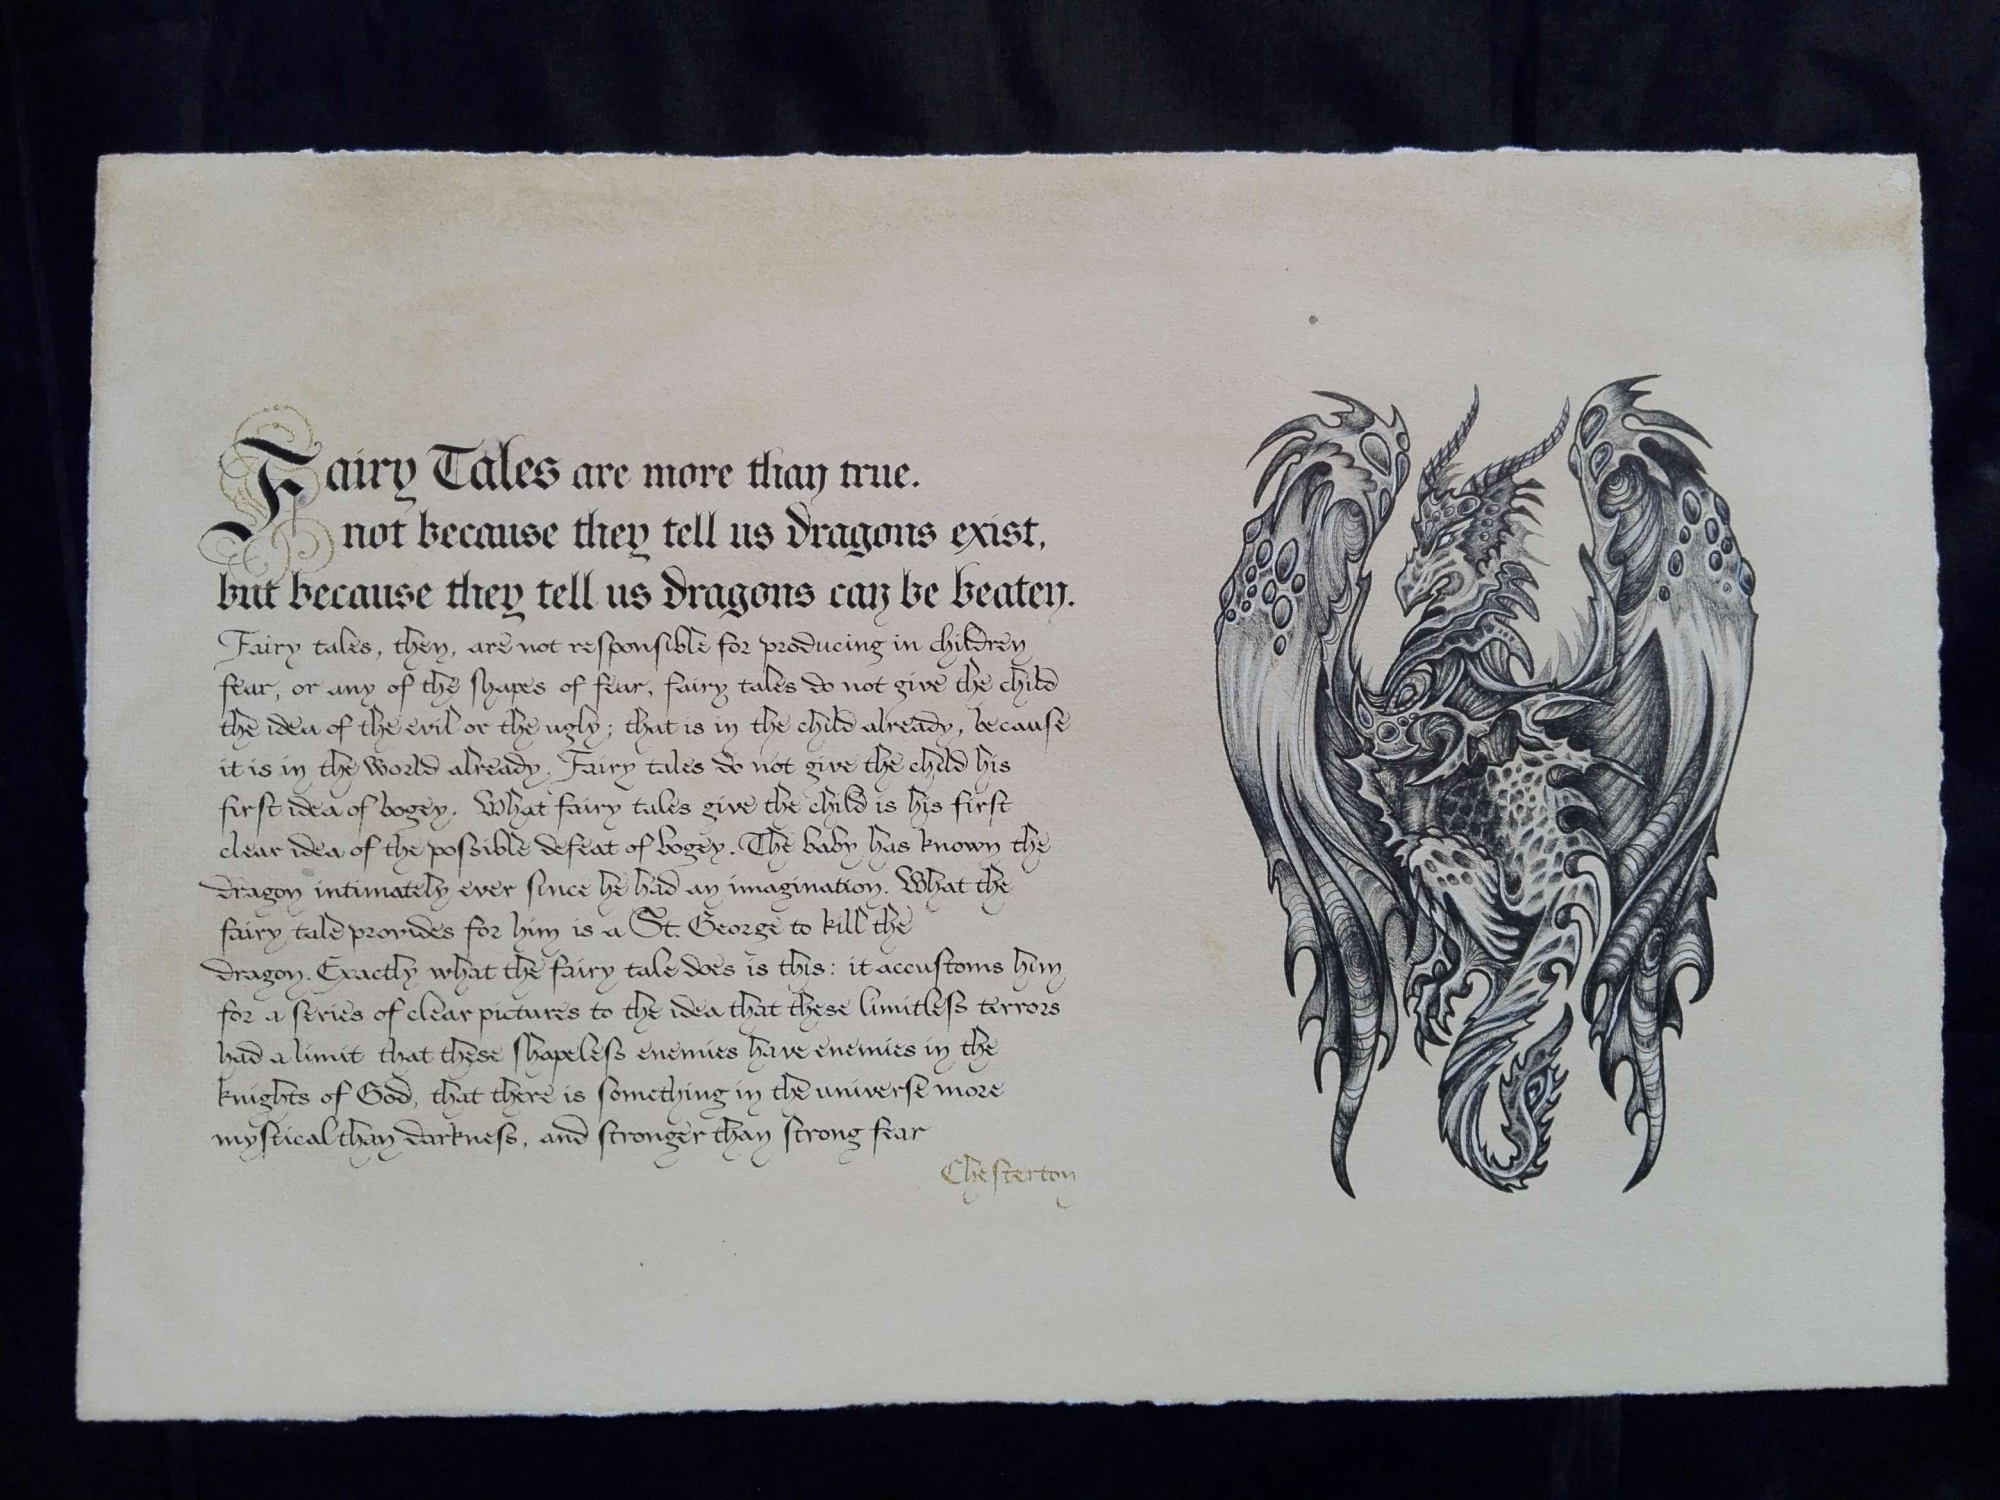 Fairy Tales are more than true.
not because they tell us dragons exist,
but because they tell us dragons can be beaten.
Fairy tales, then, are not responsible for producing in children
fear, or any of the shapes of fear, fairy tales do not give the child
the idea of the evil or the ugly; that is in the child already, because
it is in the world already. Fairy tales do not give the child his
first idea of bogey. What fairy tales give the child is his first
clear idea of the possible defeat of bogey. The baby has known the
dragon intimately ever since he had an imagination. What the
fairy tale provides for him is a St. George to kill the
dragon. Exactly what the fairy tale does is this: it accustoms him
for a series of clear pictures to the idea that these limitless terrors
had a limit that these shapeless enemies have enemies in the
knights of God, that there is something in the universe more
mystical than darkness, and stronger than strong fear
Chesterton